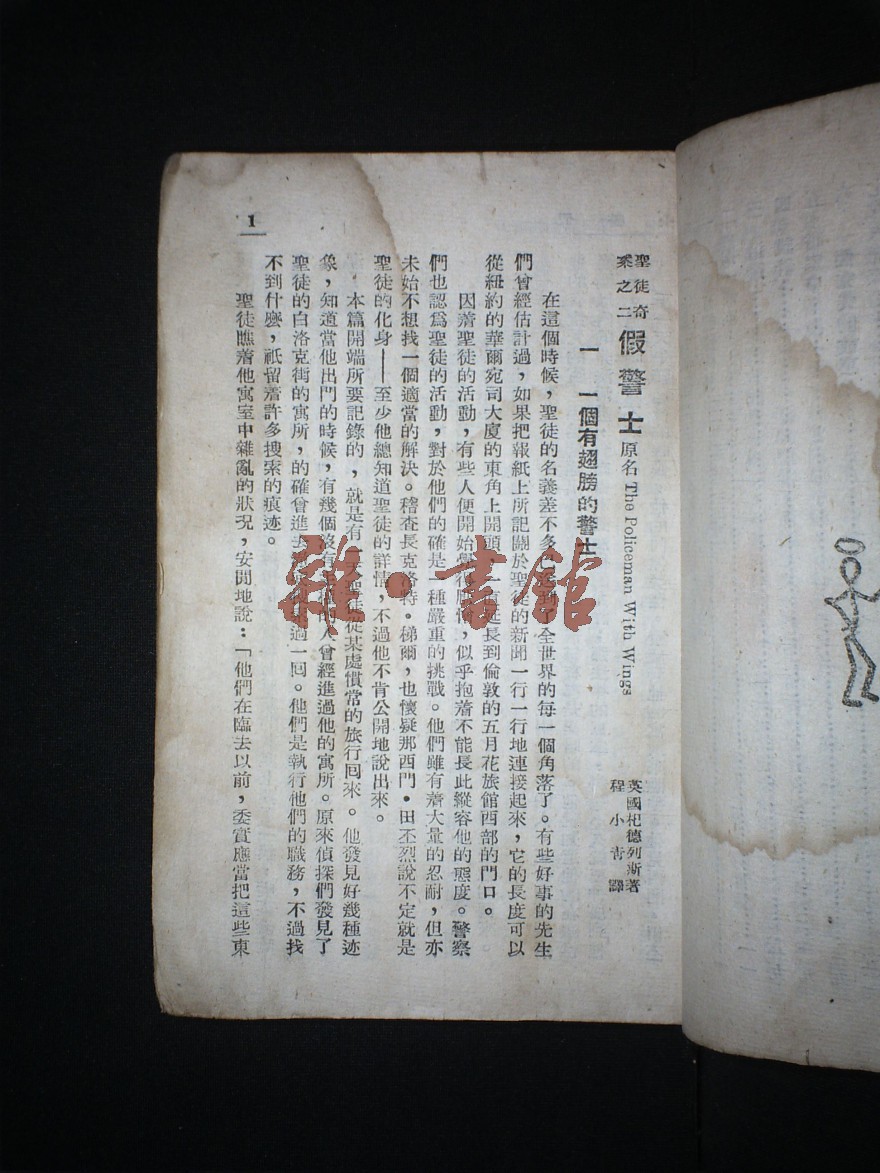 聖徒奇案之二 假警士 原名 The Policeman With Wings
英國杞德列斯著
程小青譯
一 一個有翅膀的警士
在這個時候，聖徒的名義差不多 全世界的每一個角落了。有些好事的先生
們曾經估計過，如果把報紙上所記關於聖徒的新聞一行一行地連接起來，它的長度可以
從紐約的華爾宛司大廈的東角上開頭， 延長到倫敦的五月花旅館西部的門口。
因着聖徒的活動，有些人便開始 ，似乎抱着不能長此縱容他的態度。警察
們也認爲聖徒的活動，對於他們的確是一種嚴重的挑戰。他們雖有着大量的忍耐，但亦
未始不想找一個適當的解決。稽查長克 特·梯爾，也懷疑那西門·田丕烈說不定就是
聖徒的化身——至少他總知道聖徒的詳情，不過他不肯公開地說出來。
本篇開端所要記錄的，就是有 聖徒從某處慣常的旅行回來。他發見好幾種迹
象，知道當他出門的時候，有幾個沒有 人曾經進過他的寓所。原來偵探們發見了
聖徒的白洛克街的寓所，的確曾進去 過一回。他們是執行他們的職務，不過找
不到什麽，祇留着許多搜索的痕迹。
聖徒瞧着他寓室中雜亂的狀况，安閒地說：「他們在臨去以前，委實應當把這些東
1
雜·書館